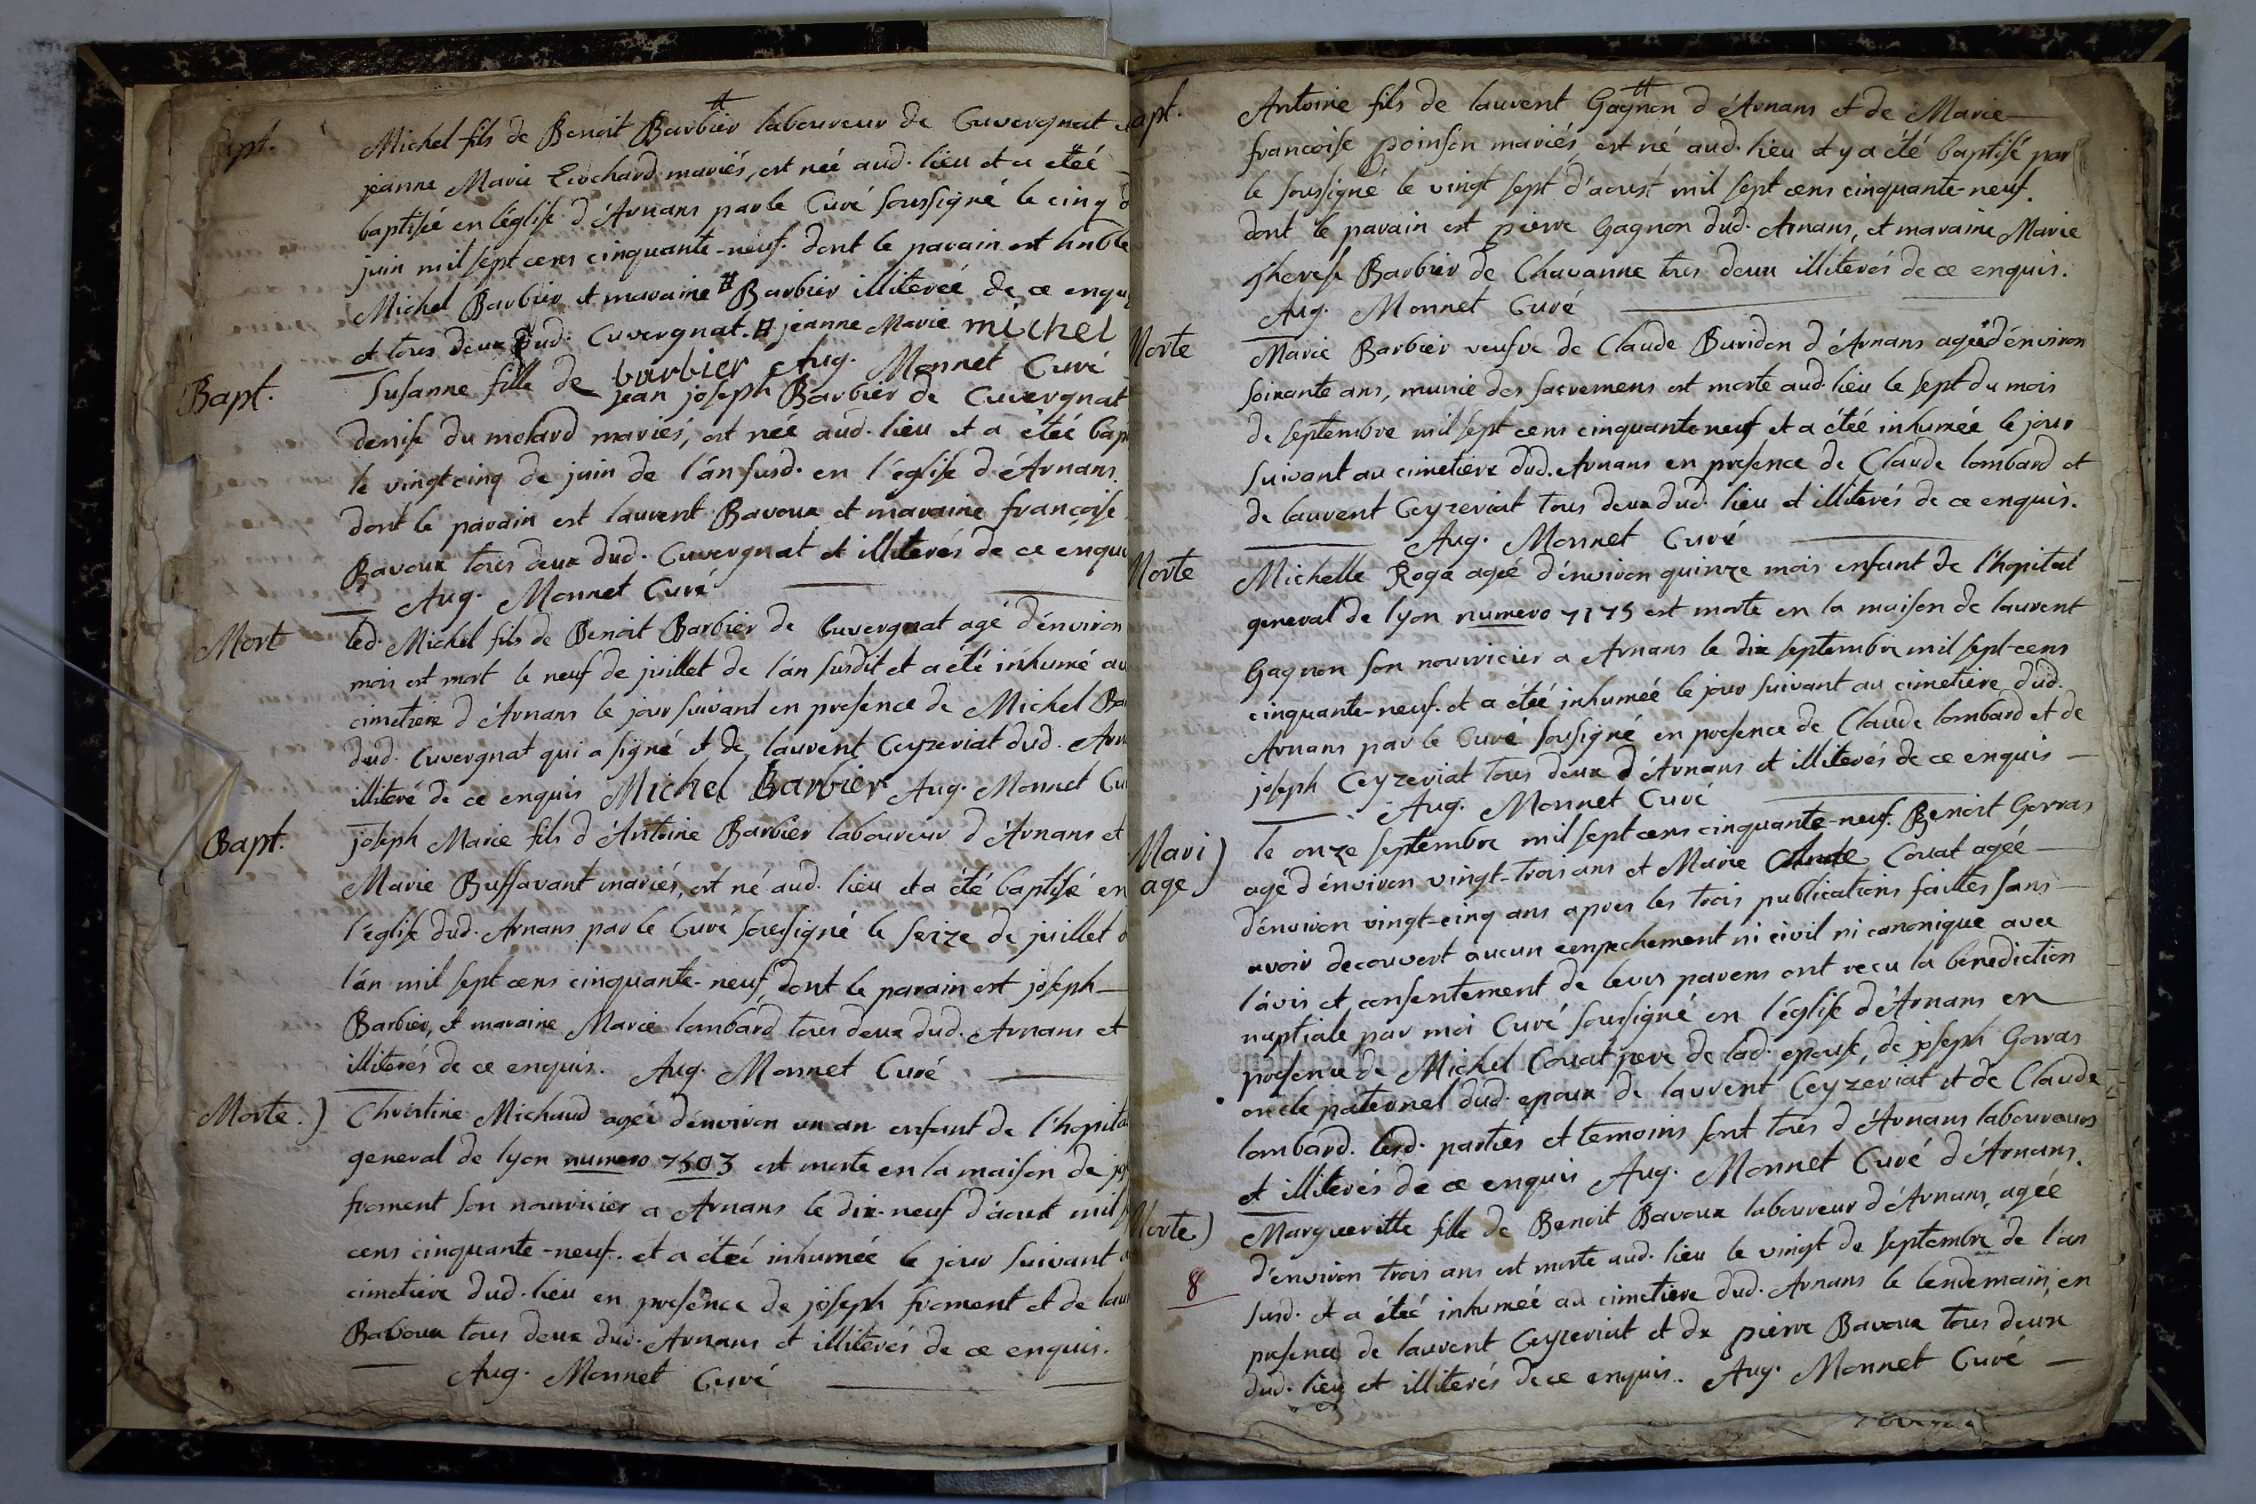 Bapt.
Michel fils de Benoit Barbier laboureur de Cuvergnat et
jeanne Marie Ecochard mariés, est née aud. lieu et a étéé
baptisée en l'église d'Arnans par le Curé soussigné le cinq d
juin mil sept cens cinquante-neuf. dont le parain est
Michel Barbier et maraine # Barbier illiterée de ce enqu
et tous deux dud. Cuvergnat. # jeanne Marie michel
barbier Aug. Monnet Curé
Bapt.
Susanne fille de jean joseph Barbier de Cuvergnat
denise du molard mariés, est née aud. lieu et a étéé bap
le vingt cinq de juin de l'an susd. en l'église d'Arnans.
dont le parain est laurent Bavoux et maraine françoise
Bavoux tous deux dud. Cuvergnat et illiterés de ce enqui
Aug. Monnet Curé
Mort
led. Michel fils de Benoit Barbier de Cuvergnat agé d'énviron
mois est mort le neuf de juillet de l'an susdit et a été inhumé au
cimetiere d'Arnans le jour suivant en presence de Michel Bar
dud. Cuvergnat qui a signé et de laurent Ceyzeriat dud. Arn
illiteré de ce enquis Michel Barbier Aug. Monnet Cu
Bapt.
joseph Marie fils d'Antoine Barbier laboureur d'Arnans et
Marie Buffavant mariés, est né aud. lieu et a été baptisé en
l'église dud. Arnans par le Curé soussigné le seize de juillet d
l'an mil sept cens cinquante-neuf dont le parain est joseph
Barbier, et maraine Marie lombard tous deux dud. Arnans et
illiterés de ce enquis. Aug. Monnet Curé
Morte.)
Christine Michaud agéé d'énviron un an enfant de l'hopita
general de lyon numero 7503 est morte en la maison de jos
froment son nourricier a Arnans le dix-neuf d'aoust mil s
cens cinquante-neuf. et a étéé inhuméé le jour suivant a
cimetiere dud. lieu en presence de joseph froment et de lau
Bavoux tous deux dud. Arnans et illiterés de ce enquis.
Aug. Monnet Curé
apt.
Antoine fils de laurent Gagnon d'Arnans et de Marie
francoise poinson mariés est né aud. lieu et y a été baptisé par
le soussigné le vingt sept d'aoust mil sept cens cinquante-neuf.
dont le parain est pierre Gagnon dud. Arnans, et maraine Marie
therese Barbier de Chavanne tous deux illiterés de ce enquis.
Aug. Monnet Curé
Morte
Marie Barbier veufve de Claude Buridon d'Arnans agéé d'énviron
soixante ans, munie des sacremens est morte aud. lieu le sept du mois
de septembre mil sept cens cinquante neuf et a étéé inhuméé le jour
suivant au cimetiere dud. Arnans en presence de Claude lombard et
de laurent Ceyzeriat tous deux dud. lieu et illiterés de ce enquis.
Aug. Monnet Curé
Morte
Michelle Roge agéé d'énviron quinze mois enfant de l'hopital
general de lyon numero 7175 est morte en la maison de laurent
Gagnon son nourricier a Arnans le dix septembre mil sept-cens
cinquante-neuf. et a étéé inhuméé le jour suivant au cimetiere dud.
Arnans par le Curé soussigné en presence de Claude lombard et de
joseph Ceyzeriat tous deux d'Arnans et illiterés de ce enquis
Aug. Monnet Curé
Mari)
age)
le onze septembre mil sept cens cinquante-neuf. Benoit Gorras
agé d'énviron vingt-trois ans et Marie Covat agéé
d'énviron vingt-cinq ans apres les trois publications faittes sans
avoir decouvert aucun empechement ni civil ni canonique avec
l'ávis et consentement de leurs parens ont recu la benediction
nuptiale par moi Curé soussigné en l'église d'Arnans en
presence de Michel Covat pere de lad. epouse, de joseph Gorras
oncle paternel dud. epoux de laurent Ceyzeriat et de Claude
lombard. lesd. parties et temoins sont tous d'Arnans laboureurs
et illiterés de ce enquis Aug. Monnet Curé d'Arnans.
Morte)
Margueritte fille de Benoit Bavoux laboureur d'Arnans agéé
d'énviron trois ans est morte aud. lieu le vingt de septembre de l'an
susd. et a étéé inhuméé au cimetiere dud. Arnans le lendemain en
presence de laurent Ceyzeriat et de pierre Bavoux tous deux
dud. lieu et illiterés de ce enquis. Aug. Monnet Curé
8